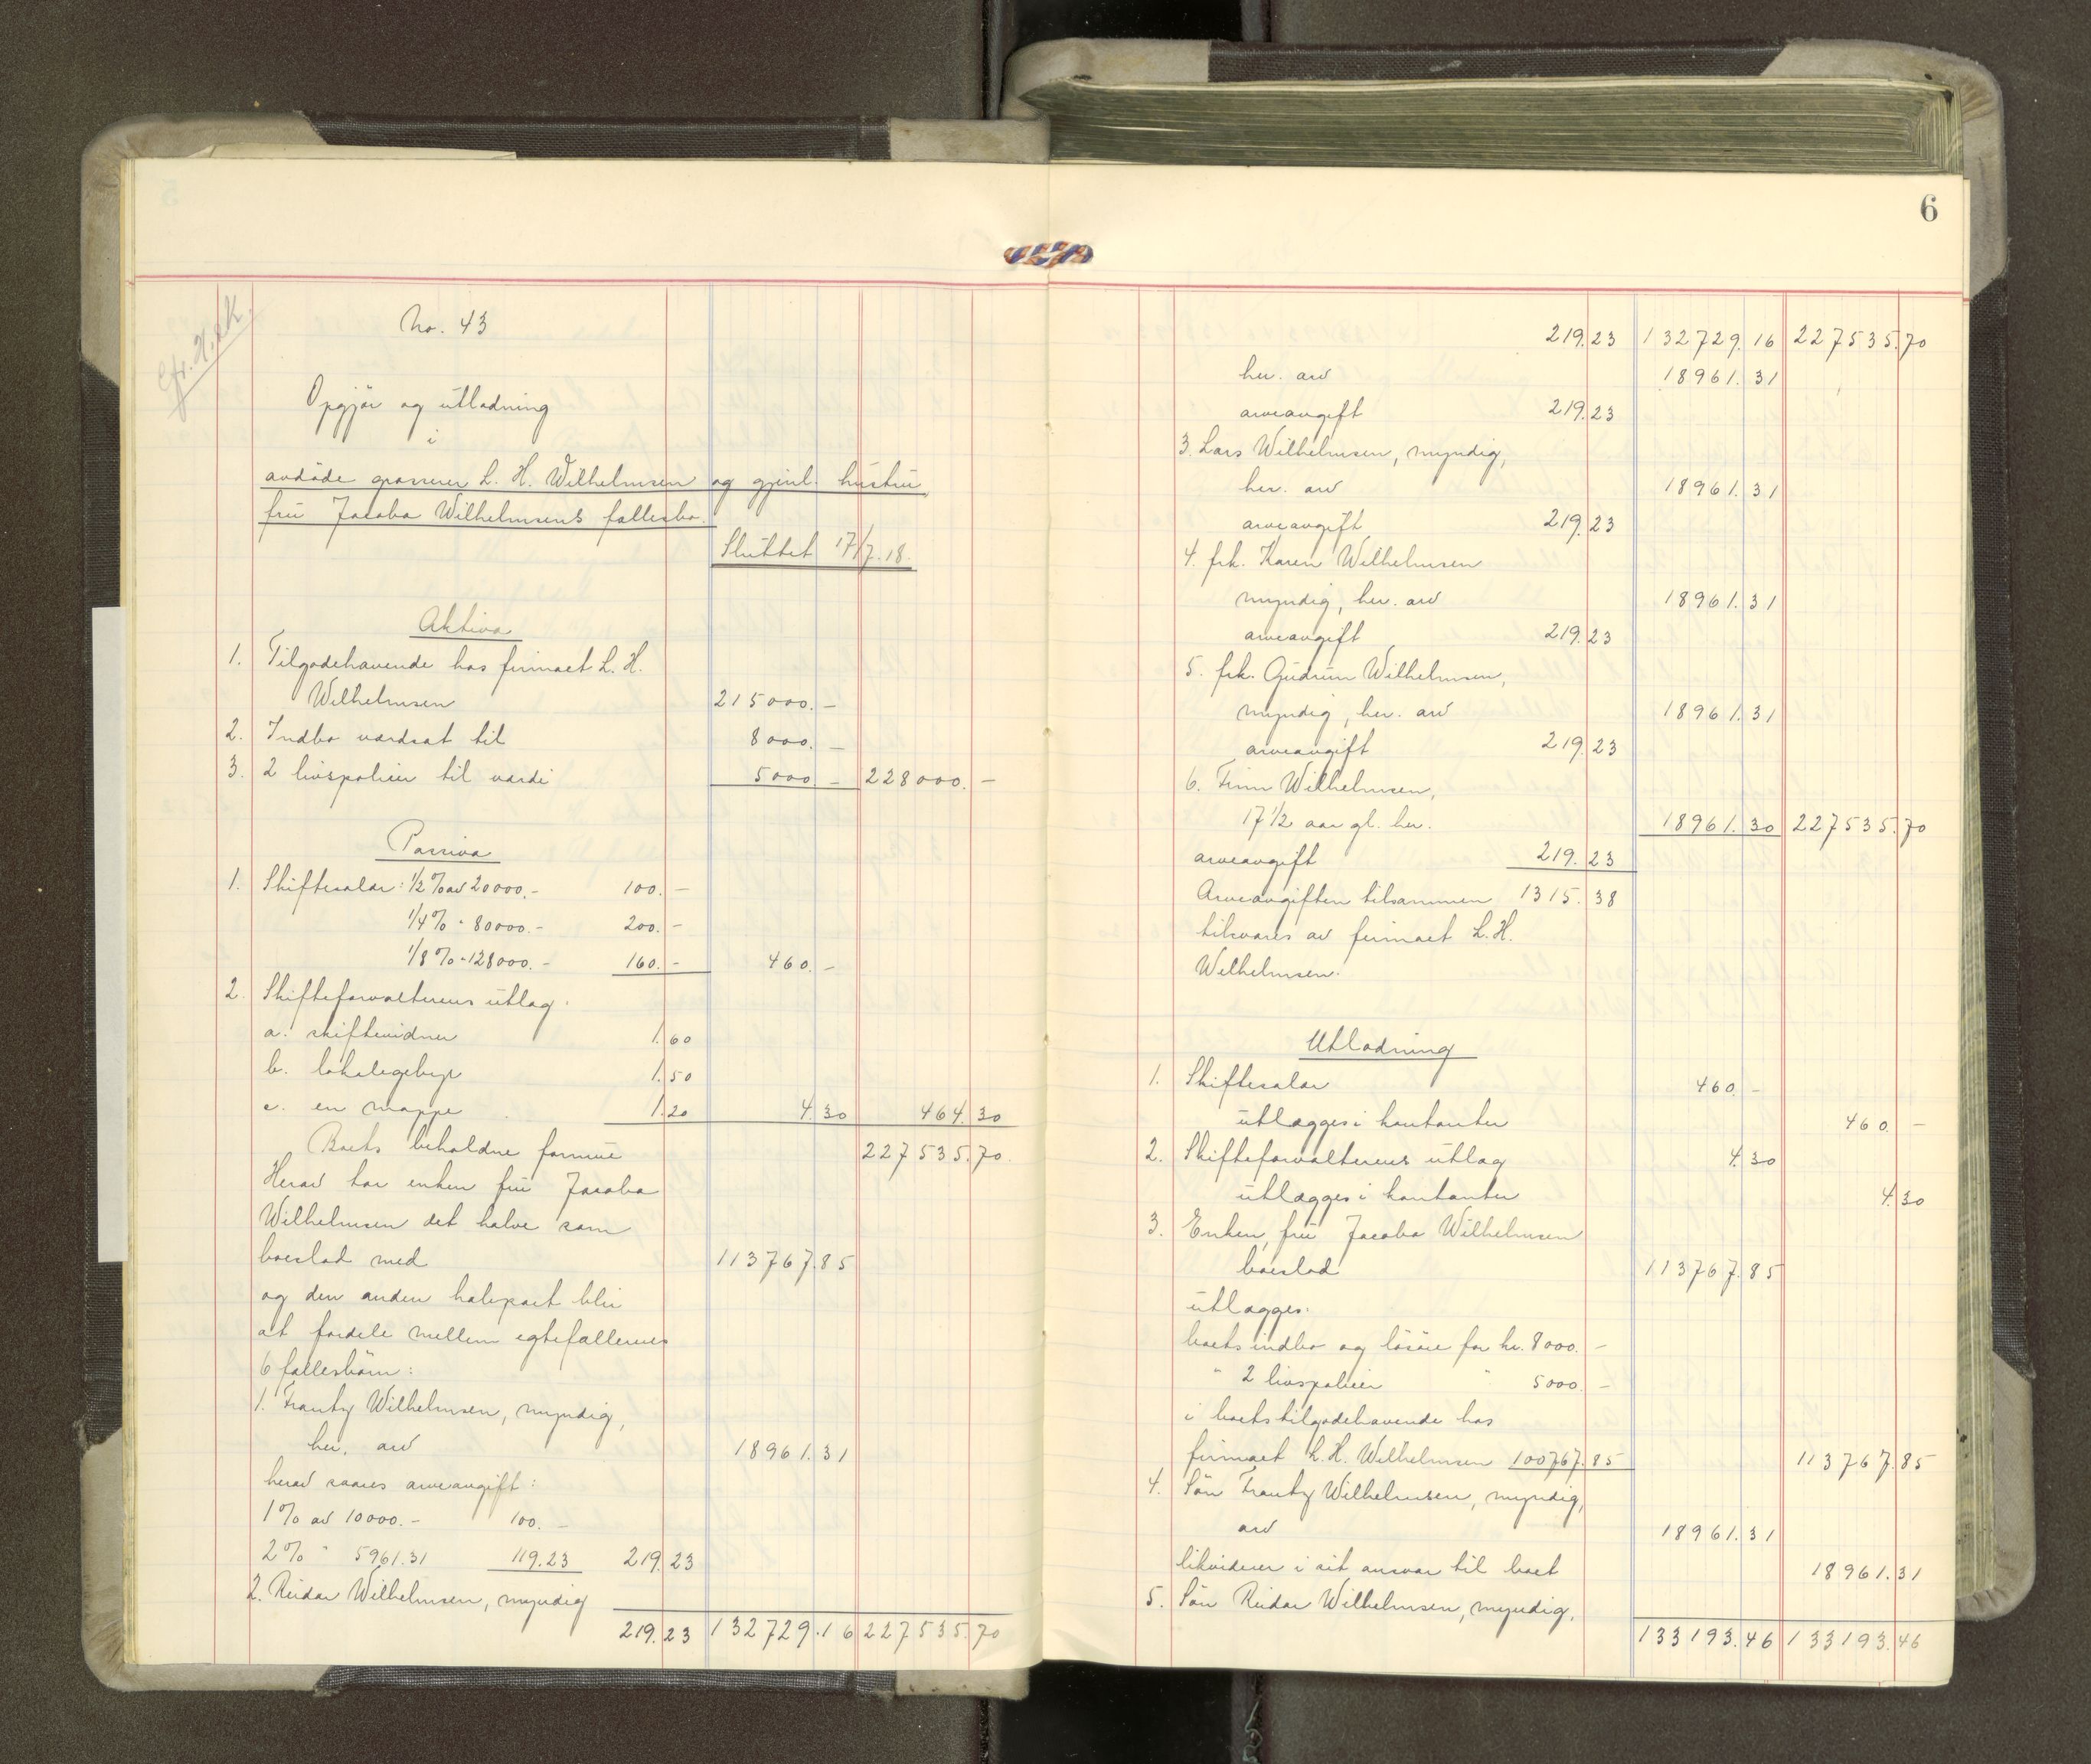 No. 43
Opgjör og utlodning
i
avdöde grosserer L. H. Wilhelmsen og gjenl. hustru,
fru Jacoba Wilhelmsens fællesbo.
Sluttet 17/7.18.
Aktiva
1. Tilgodehavende hos firmaet L. H.
Wilhelmsen 215000. –
2. Indbo værdsat til 8000. –
3. 2 livspolicer til værdi 5000. – 228000. –
Passiva
1. Skiftesalær: 1/2 % av 20000.- 100. –
1/4 % " 80000.- 200. –
1/8 % " 128000.- 160. – 460. –
2. Skifteforvalterens utlæg:
a. skiftevidner 1.60
b. lokalegebyr 1.50
c. en mappe 1.20 4.30 464.30
Boets beholdne formue 227535.70.
Herav tar enken fru Jacoba
Wilhelmsen det halve som
boeslod med 113767.85
og den anden halvpart blir
at fordele mellem egtefællernes
6 fællesbörn:
1. Frantz Wilhelmsen, myndig,
her. arv 18961.31
herav svares arveavgift:
1% av 10000.- 100. –
2% " 5961.31 119.23 219.23
2. Reidar Wilhelmsen, myndig
219.23 132729.16 227535.70
6
219.23 132729.16 227535.70
her. arv 18961.31
arveavgift 219.23
3. Lars Wilhelmsen, myndig,
her. arv 18961.31
arveavgift 219.23
4. frk. Karen Wilhelmsen
myndig, her. arv 18961.31
arveavgift 219.23
5. frk. Gudrun Wilhelmsen,
myndig, her. arv 18961.31
arveavgift 219.23
6. Finn Wilhelmsen,
17 1/2 aar gl. her. 18961.30 227535.70
arveavgift 219.23
Arveavgiften tilsammen 1315.38
tilsvares av firmaet L. H.
Wilhelmsen.
Utlodning
1. Skiftesalær 460. –
utlægges i kontanter 460. –
2. Skifteforvalterens utlæg 4.30
utlægges i kontanter 4.30
3. Enken, fru Jacoba Wilhelmsen
boeslod 113767.85
utlægges:
boets indbo og lösöre for kr. 8000. –
" 2 livspolicer " 5000. –
i boets tilgodehavende hos
firmaet L. H. Wilhelmsen 100767.85 113767.85
4. Sön Frantz Wilhelmsen, myndig,
arv 18961.31
likviderer i sit ansvar til boet 18961.31
5. Sön Reidar Wilhelmsen, myndig,
133193.46 133193.46